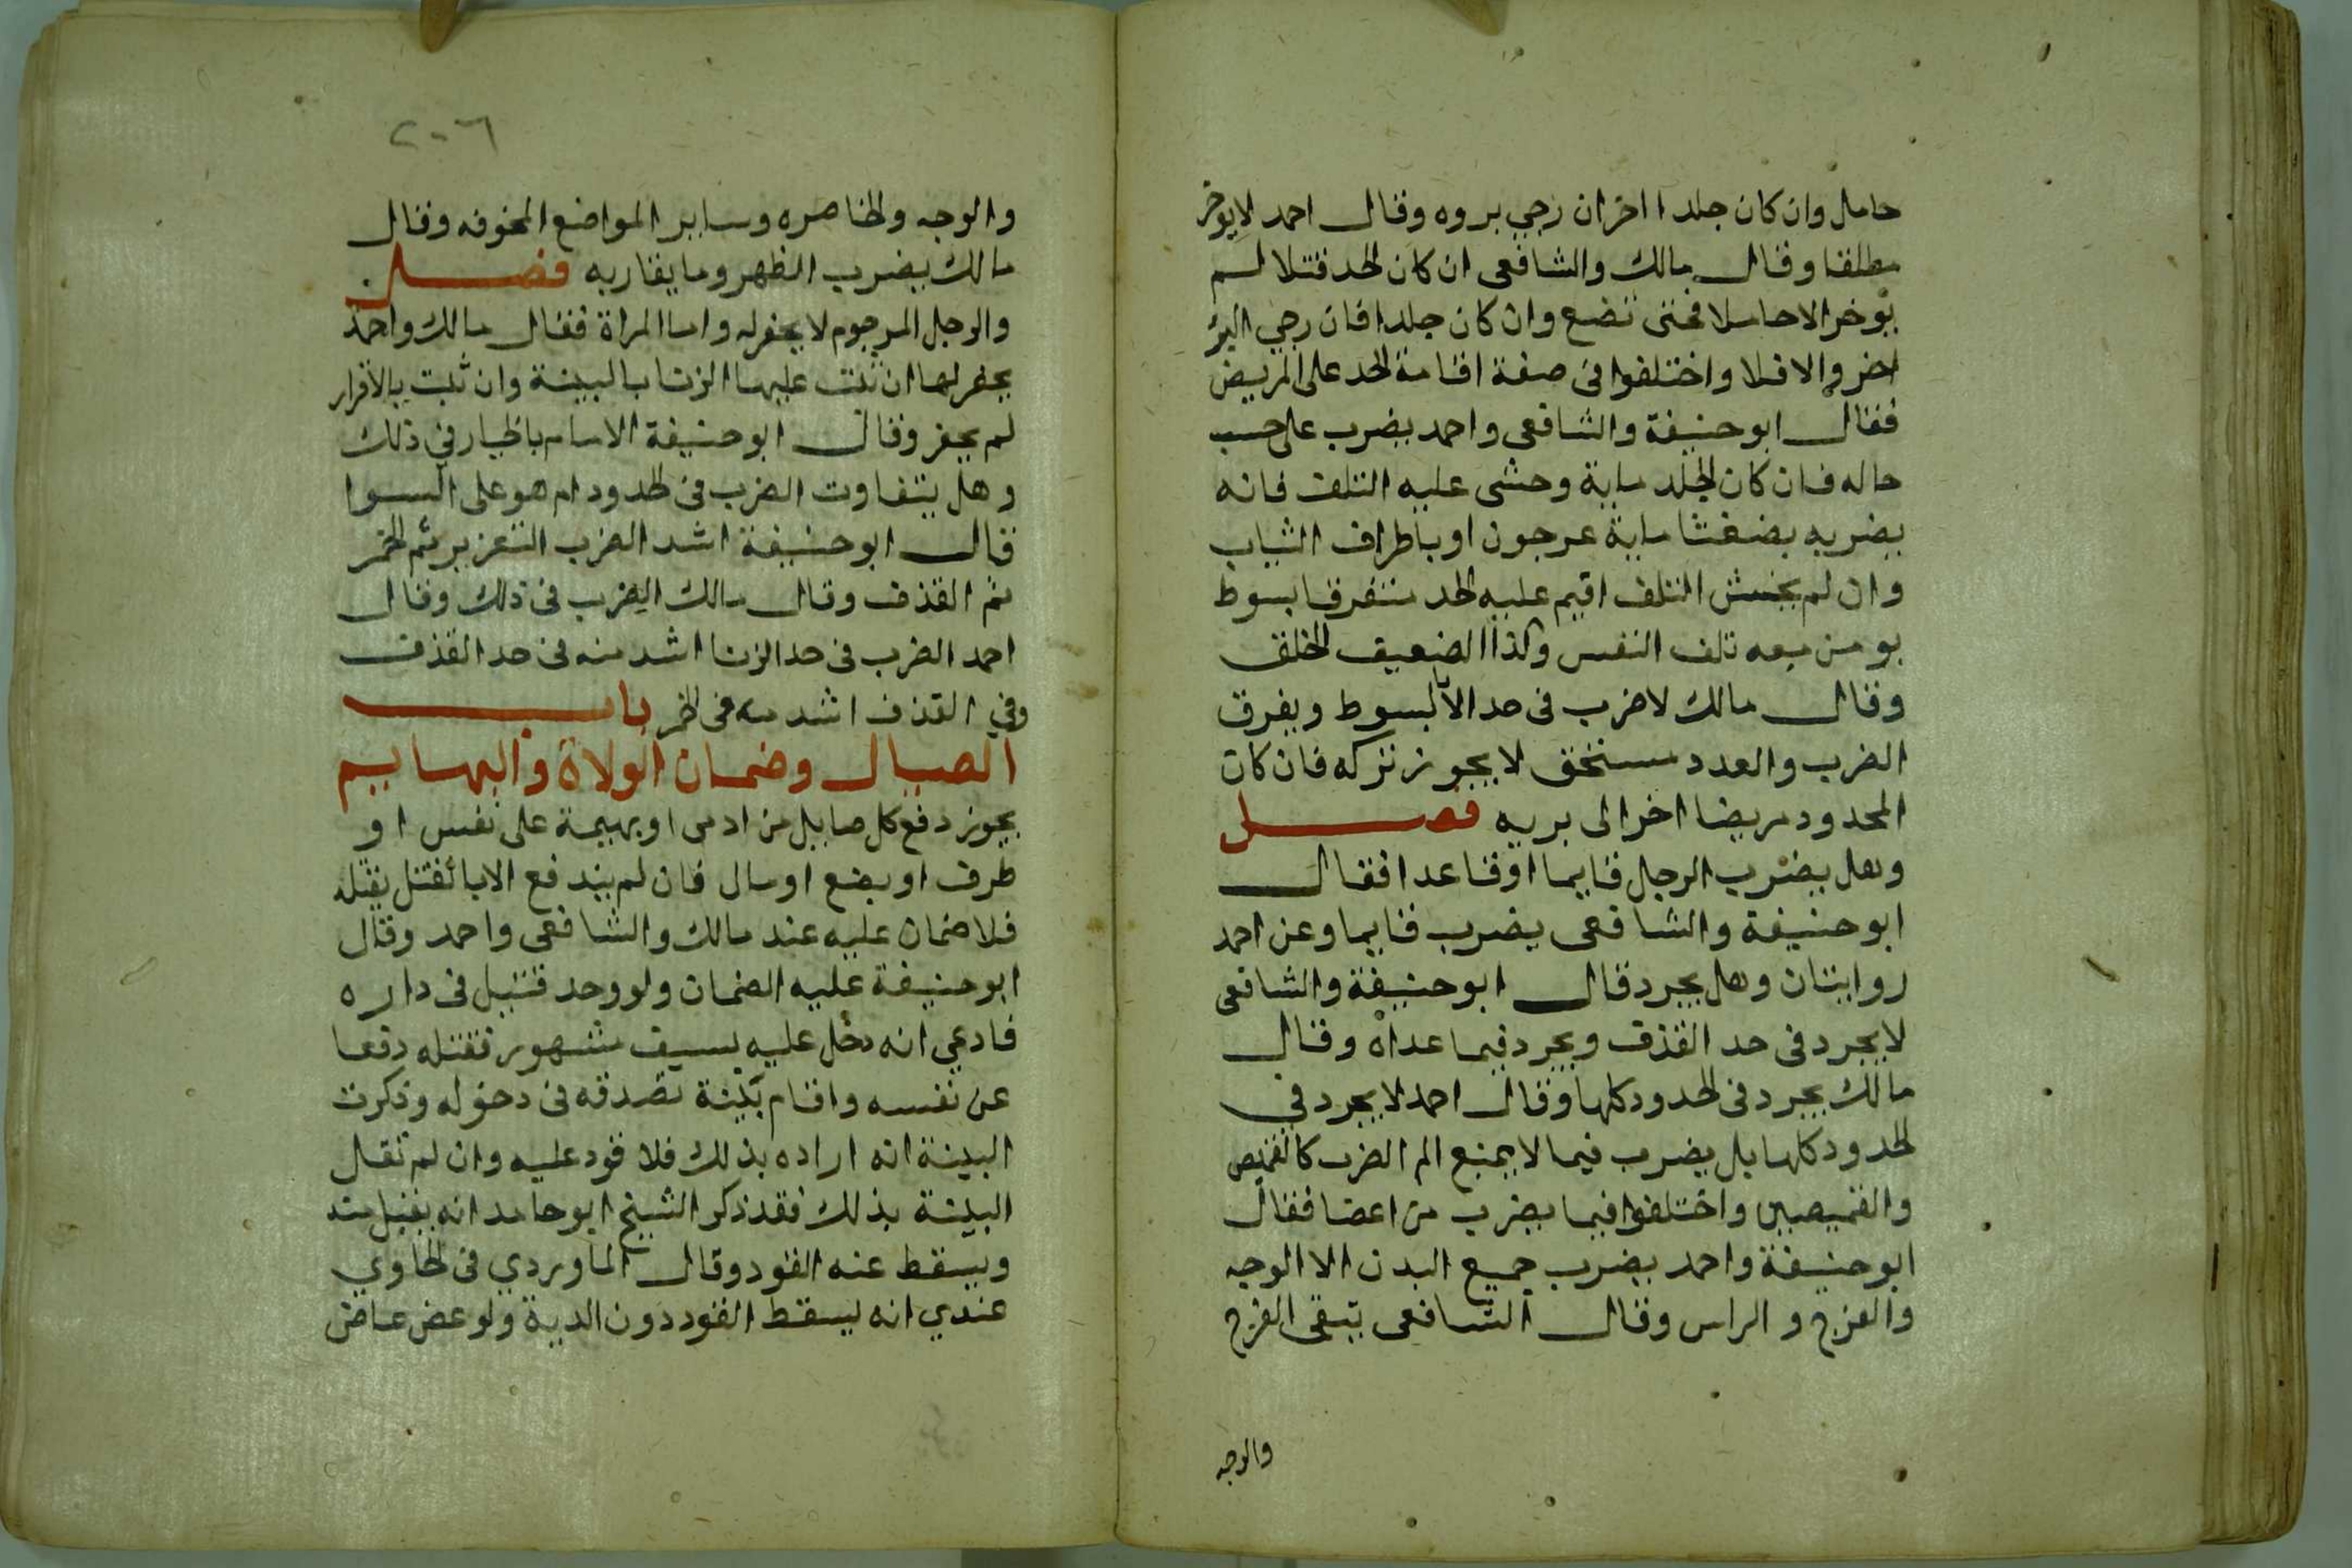 حامل وان كان جلدا اخران رجي بروه وقال احمد لايوخر
مطلقا وقال مالك والشافعى ان كان الحد قتلا لم
يوخر الا حاملا فحتى تضع وان كان جلدا فان رجي البرء
اخر والا فلا واختلفوا فى صفة اقامة الحد على المريض
فقال ابو حنيفة والشافعى واحمد يضرب على حسب
حاله فان كان الجلد ماية وخشى عليه التلف فانه
يضربه بضغثا ماية عرجون او باطراف الثياب
وان لم يخش التلف اقيم عليه الحد متفرقا بسوط
يومن معه تلف النفس وكذا الضعيف الخلق
وقال مالك لا ضرب فى حد الا بالسوط ويفرق
الضرب والعدد مستحق لا يجوز تركه فان كان
المحدود مريضا اخر الى بريه فصل
وهل يضرب الرجل قايما او قاعدا فقال
ابو حنيفة والشافعى يضرب قايما وعن احمد
روايتان وهل يجرد قال ابو حنيفة والشافعى
لا يجرد فى حد القذف ويجرد فيما عداه وقال
مالك يجرد فى الحدود كلها وقال احمد لا يجرد في
الحدود كلها بل يضرب فيما لا يمنع الم الضرب كالقميص
والقميصين واختلفوا فيما يضرب من اعضا فقال
ابو حنيفة واحمد يضرب جميع البدن الا الوجه
والفرج والراس وقال الشافعى يتقى الفرج
والوجه
٢٠٦
والوجه والخاصره وساير المواضع المخوفه وقال
مالك يضرب الظهر وما يقاربه فصل
والرجل المرجوم لا يحفر له واما المراة فقال مالك واحمد
يحفر لها ان ثبت عليها الزنا بالبينة وان ثبت بالاقرار
لم يحفر وقال ابو حنيفة الامام بالخيار في ذلك
وهل يتفاوت الضرب فى الحدود ام هو على السوا
قال ابو حنيفة اشد الضرب التعزير ثم الخمر
ثم القذف وقال مالك الضرب فى ذلك وقال
احمد الضرب فى حد الزنا اشد منه فى حد القذف
وفي القذف اشد منه فى الخمر باب
الصيال وضمان الولاة والبهايم
يجوز دفع كل صايل من ادمى او بهيمة على نفس او
طرف او بضع او مال فان لم يندفع الا بالقتل بقتله
فلا ضمان عليه عند مالك والشافعى واحمد وقال
ابو حنيفة عليه الضمان ولو وجد قتيل فى داره
فادعي انه دخل عليه بسيف مشهور فقتله دفعا
عن نفسه واقام بينة تصدقه فى دخوله وذكرت
البينة انه اراده بذلك فلا قود عليه وان لم تقل
البينة بذلك فقد ذكر الشيخ ابو حامد انه يقبل منه
ويسقط عنه القود وقال الماوردي فى الحاوي
عندي انه يسقط القود دون الدية ولو عض عاض